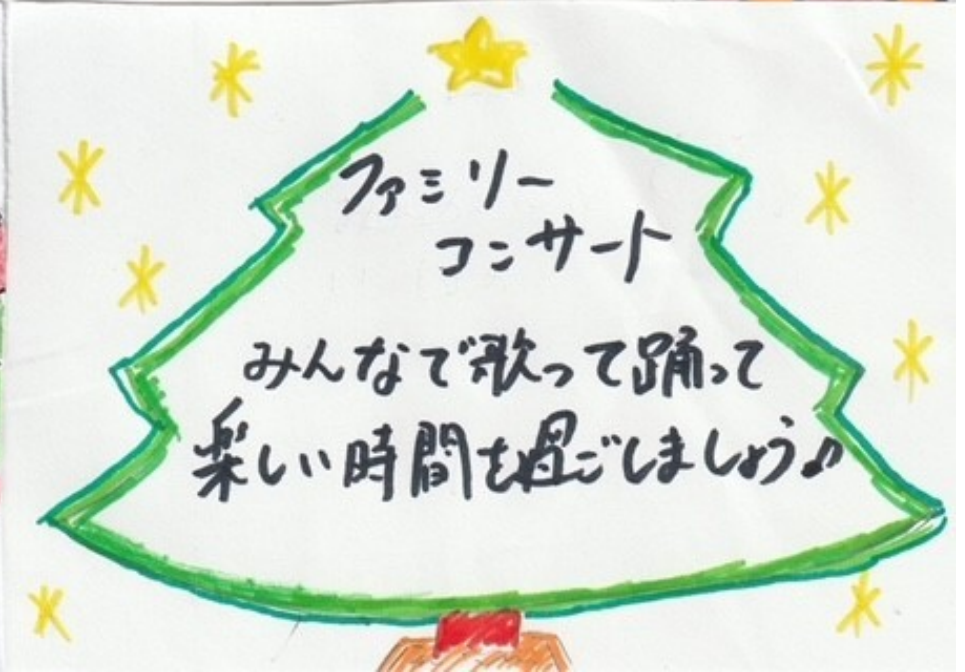 ファミリー
コンサート
みんなで歌って踊って
楽しい時間を過ごしましょう♪